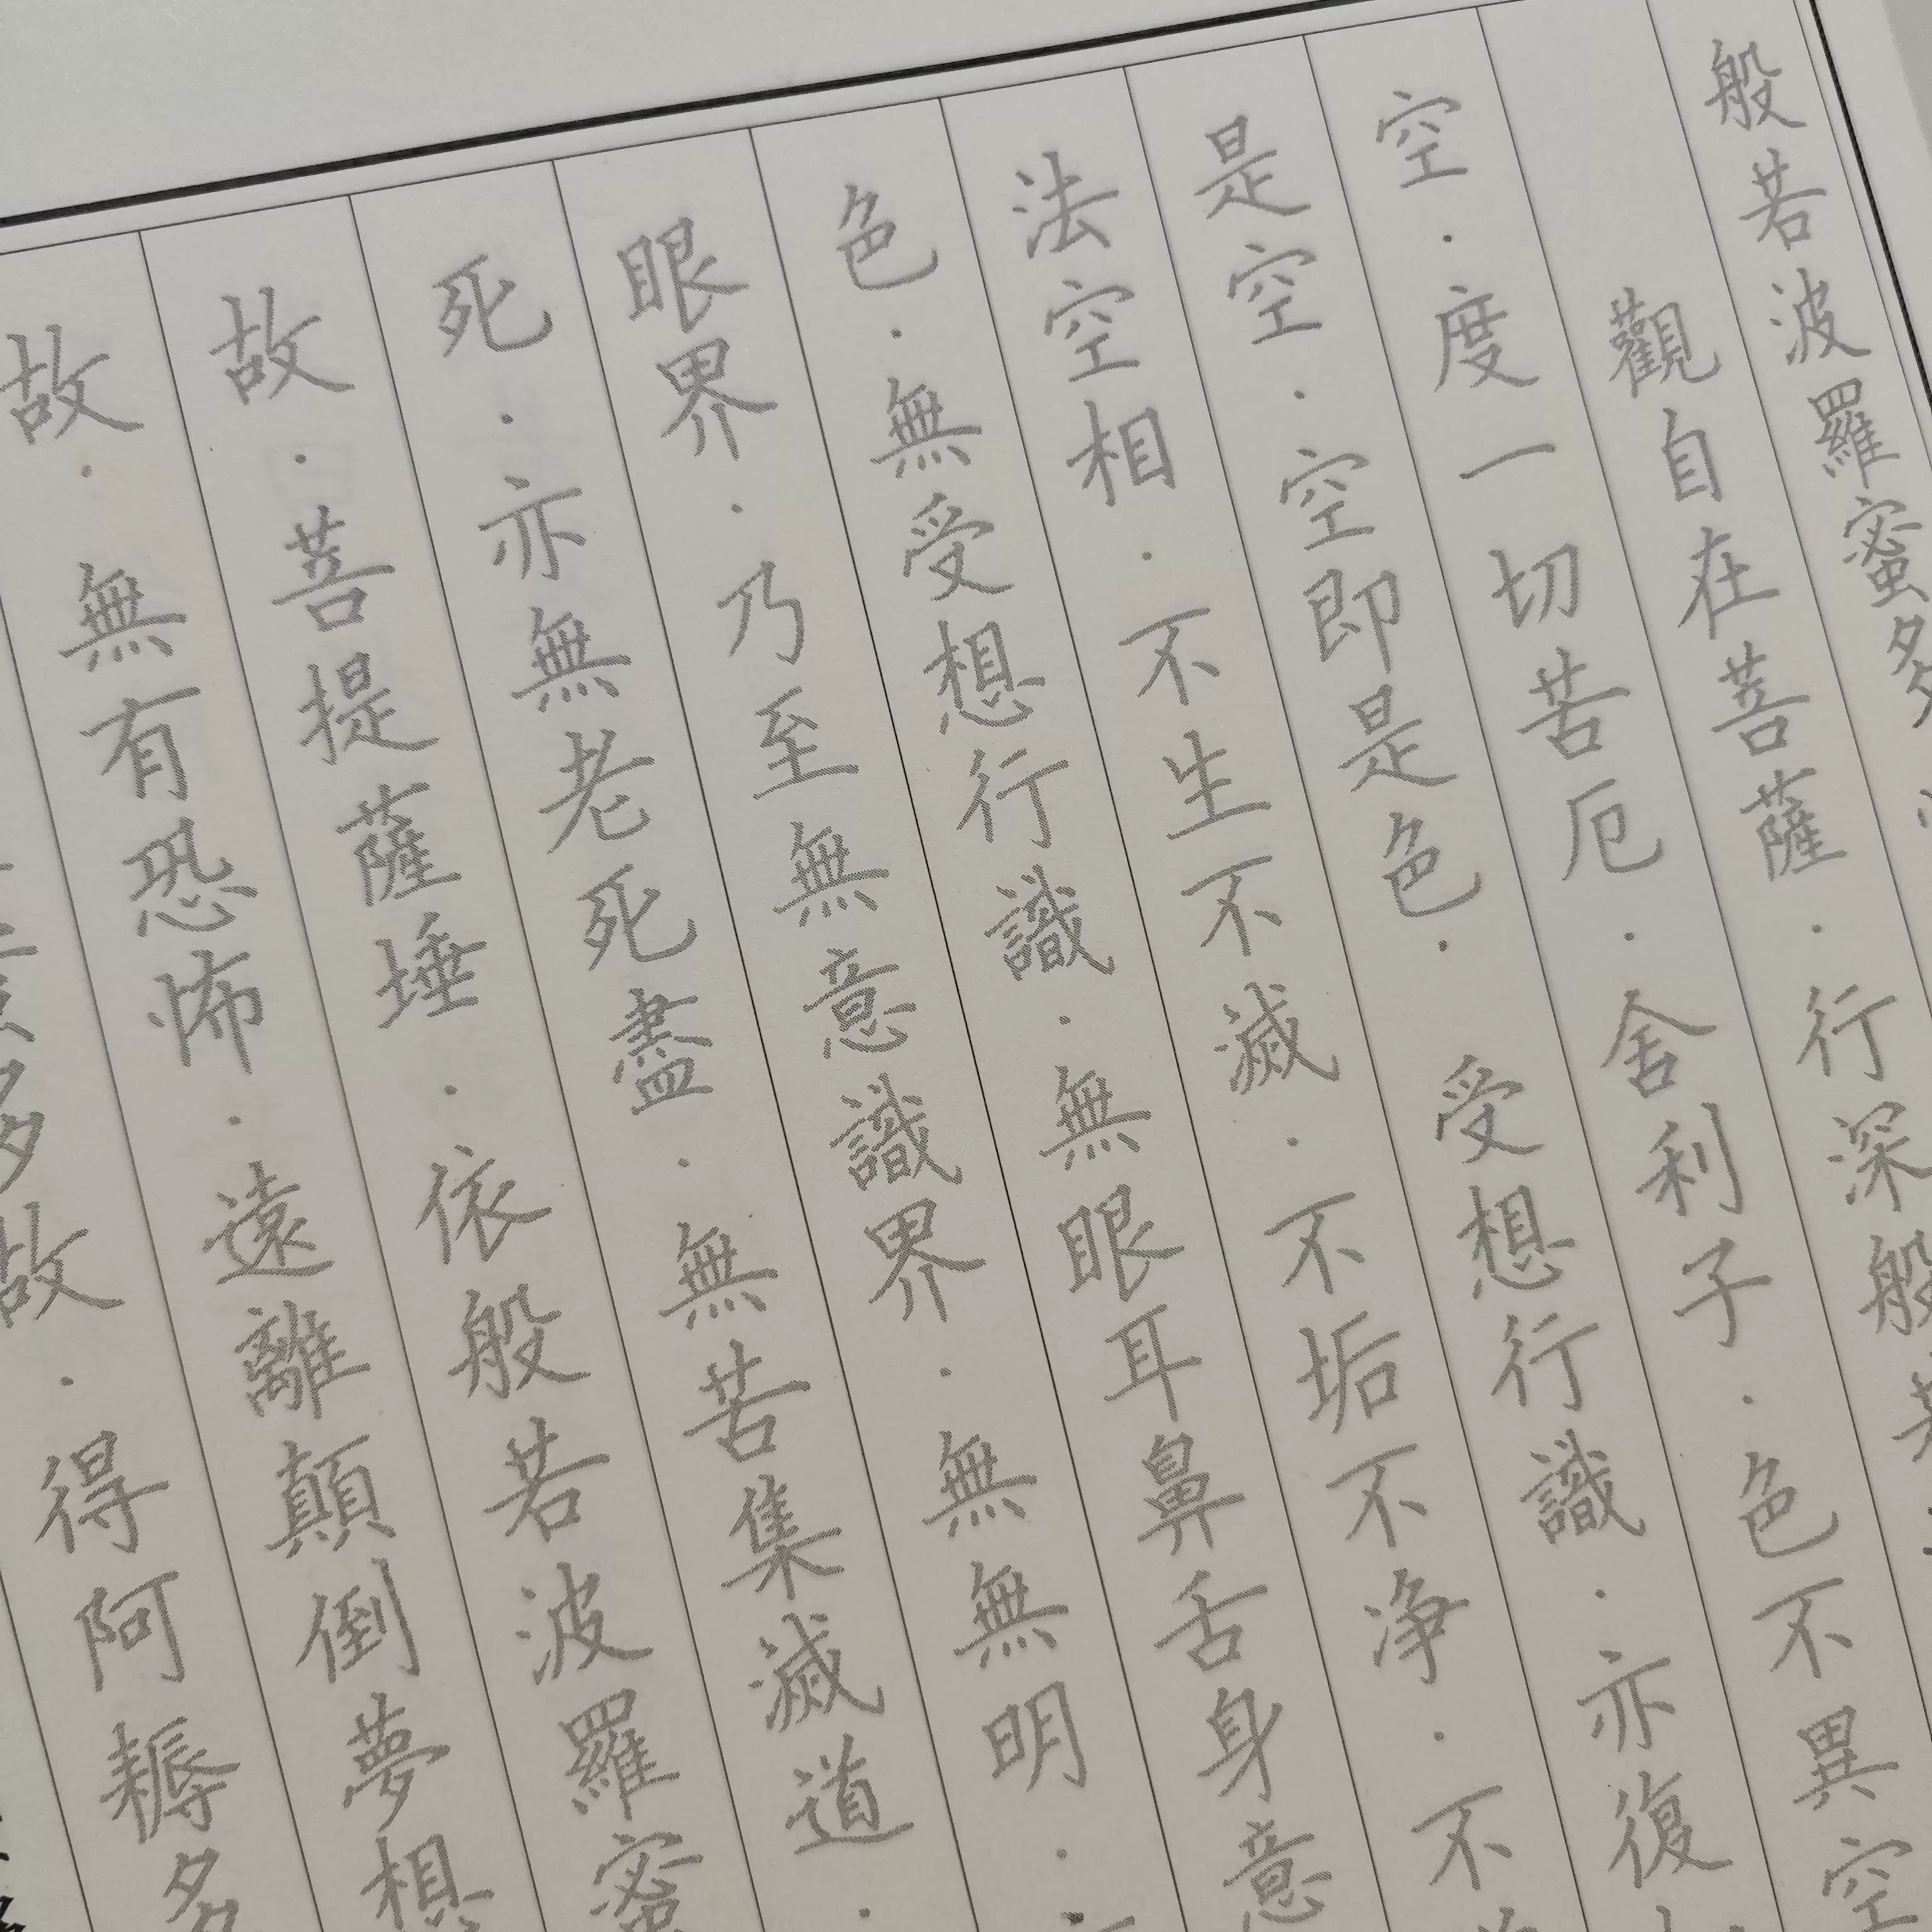 般若波羅蜜多
觀自在菩薩．行深般若
空．度一切苦厄．舍利子．色不異空
是空．空即是色．受想行識．亦復
法空相．不生不滅．不垢不净．不
色．無受想行識．無眼耳鼻舌身意
眼界．乃至無意識界．無無明．
死．亦無老死盡．無苦集滅道．
故．菩提薩埵．依般若波羅蜜
故．無有恐怖．遠離顛倒夢想
多故．得阿耨多